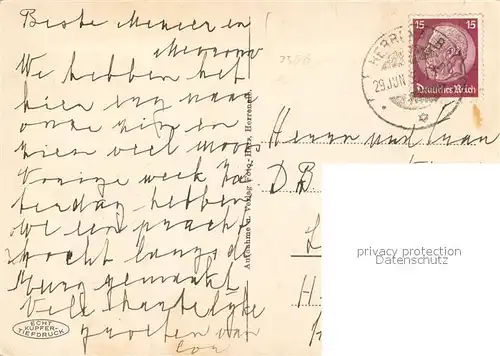 Beste Meneer en
Mevrouw
We hebben het
hier erg naar
onze zin en
zien veel moois
Vorige week Za-
terdag hebben
we een pracht
tocht langs d
Burg gemaakt
Vele Hartelijke
groeten van
Cor
ECHT
KUPFER-
TIEFDRUCK
Aufnahme u. Verlag Foto-Harz, Herrenalb.
29.JUN
15 15
Deutsches Reich
Herrn und Frau
D
privacy protection
www.oldthing.de